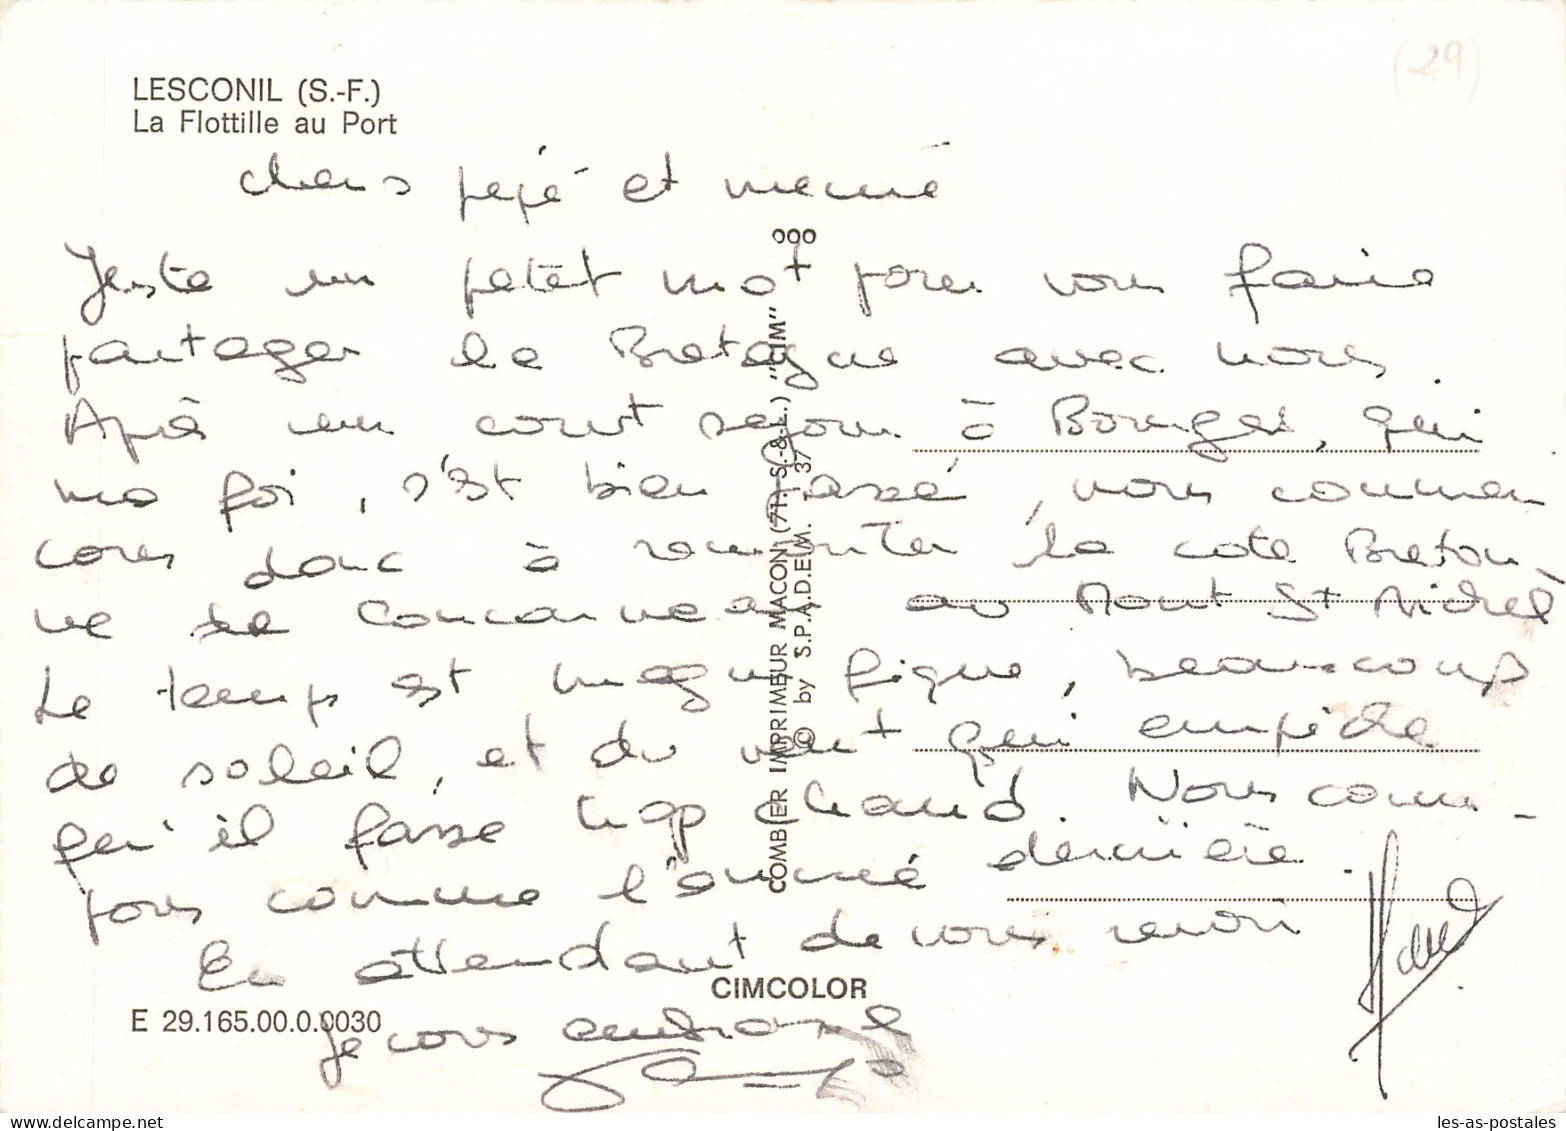 (29)
LESCONIL (S.-F.)
La Flottille au Port
chers pépé et mémé
Juste un petit mot pour vous faire
partager la Bretagne avec nous.
Après un court sejour à Bourges, qui
ma foi, s'est bien passé, nous commen
cons donc à remonter la cote Breton
ne de Concarneau au Mont St Michel
Le temps est magnifique, beaucoup
de soleil, et du vent qui empêche
qu'il fasse trop chaud. Nous cam-
pons comme l'année dernière.
En attendant de vous revoir
Je vous embrasse
COMBIER IMPRIMEUR MACON (71. S.-&-L.) "CIM"
© by S.P.A.D.E.M. 37
CIMCOLOR
E 29.165.00.0.0030
les-as-postales